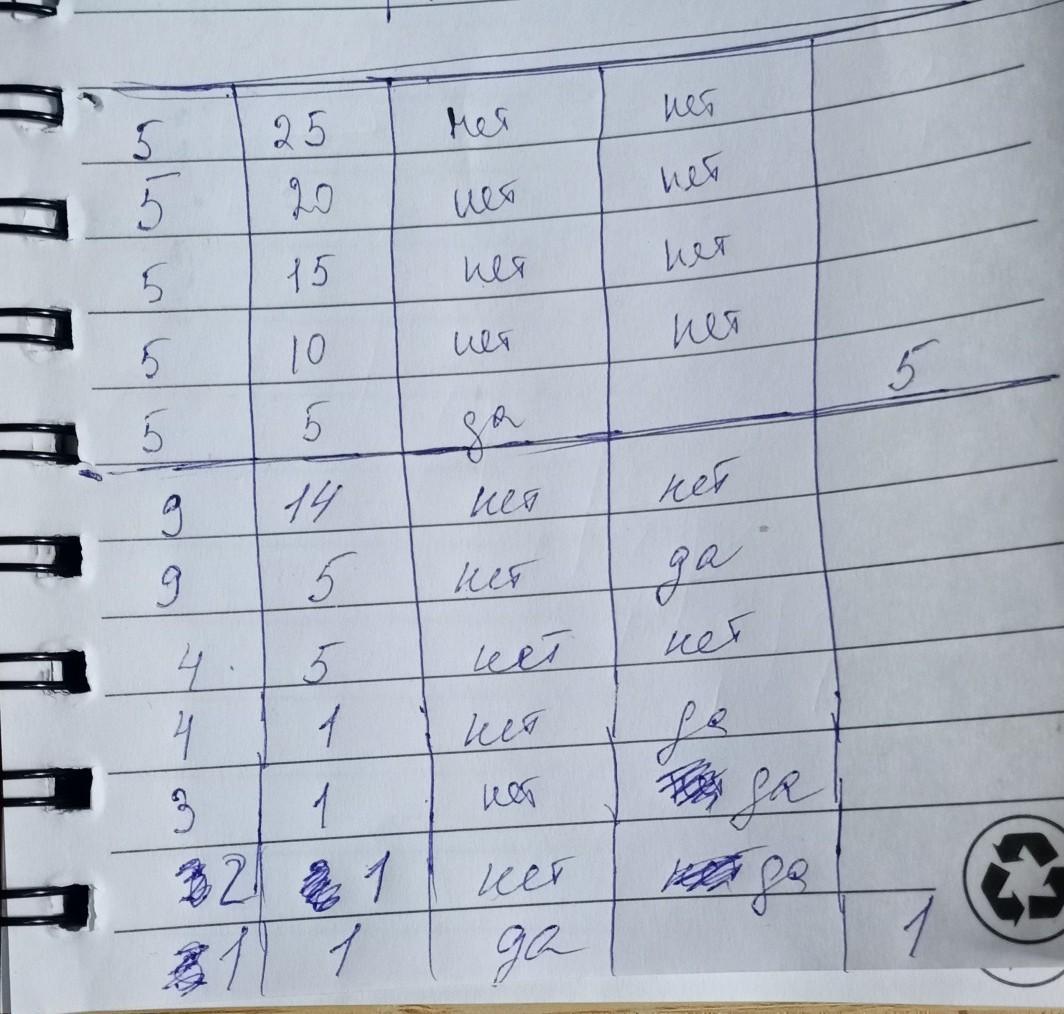 5 25 нет нет
5 20 нет нет
5 15 нет нет
5 10 нет нет
5 5 да 5
9 14 нет нет
9 5 нет да
4 5 нет нет
4 1 нет да
3 1 нет да
2 1 нет да
1 1 да 1